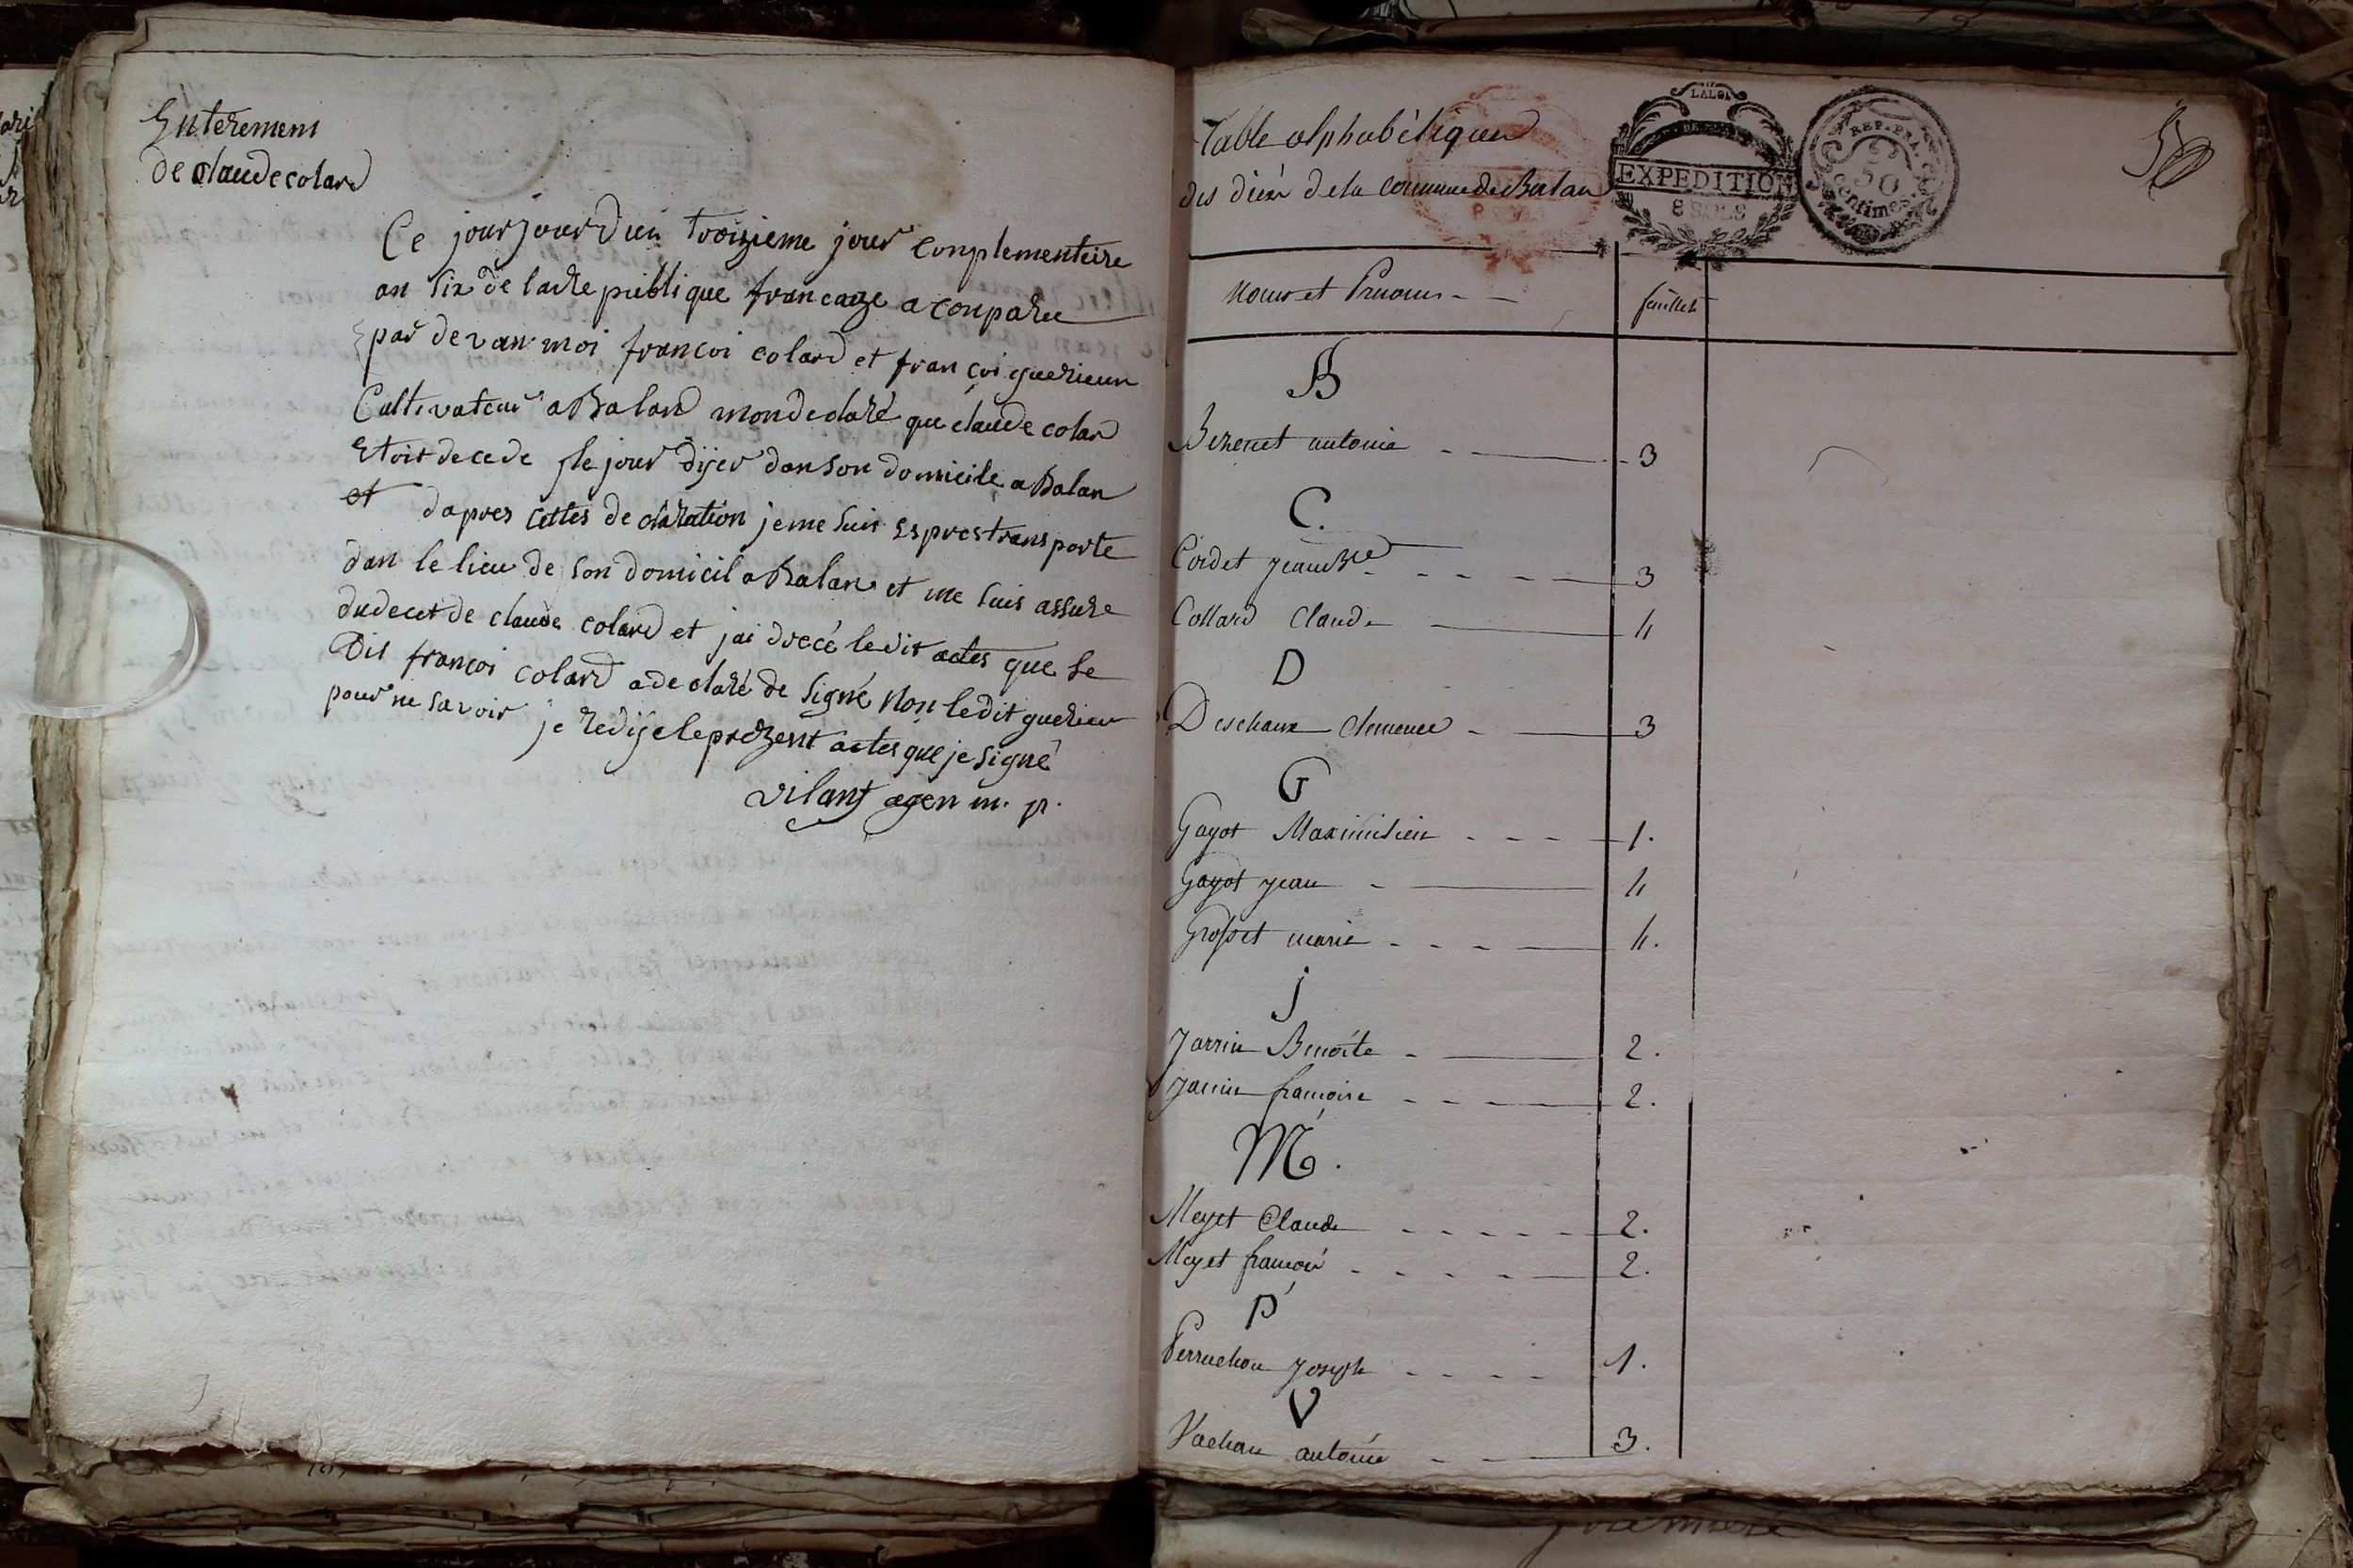 Enterement
de claude colard
Ce jour jourdui troizieme jour conplementeire
an six de la republique francaize a conparu
par devan moi françoi colard et françoi guerieur
Cultivateur a Balan mon declaré que claude colar
etoit decede le jour dijer dan son domicile a Balan
et dapres cettes declaration je me suis espres transporte
dan le lieu de son domicil a Balan et me suis assure
du decet de claude colard et jai drecé ledit actes que le
Dit françoi colard a declaré de signé non ledit guerieur
pour ne savoir je redije le prezent actes que je signé
vilant agen m. p.
Table alphabétique
des décés de la commune de Balan
LA LOI
EXPEDITION
8 SOLS
REP. FRA.
50
Centimes
Noms et Prenoms
feuillets
B
antoine 3
C.
Cordet Jean Bte 3
Collard Claude 4
D
Deschaux Clemence 3
G
Gayot Maximilien 1.
Gayot Jean 4
Grosset marie 4.
J
Jarrin Benoite 2.
Jarrin françoise 2.
M.
Meyet Claude 2.
Meyet françois 2.
P
Perruchon Joseph 1.
V
Vachon antoine 3.